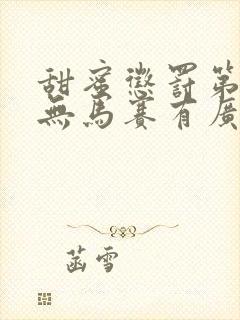 甜蜜懲罰第
無馬賽有廣
菡雪